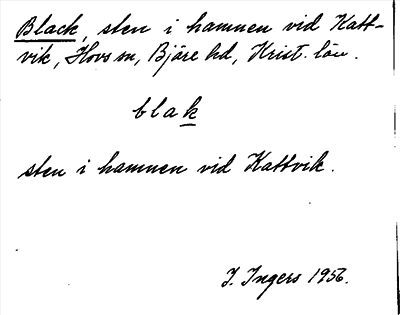 Black, sten i hamnen vid Katt-
vik, Hovs sn, Bjäre hd, Krist. län.
blak
sten i hamnen vid Kattvik.
I. Ingers 1956.